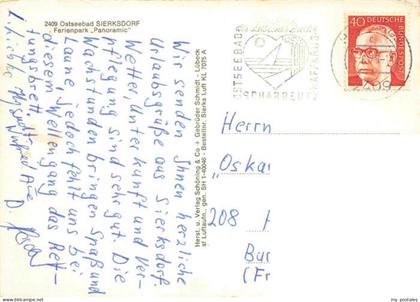 2409 Ostseebad SIERKSDORF
Ferienpark „Panoramic"
Wir senden Ihnen herzliche
Urlaubsgrüße aus Sierksdorf
Wetter Unterkunft und Ver-
pflegung sind sehr gut. Die
Wachstunden bringen Spaß und
Laune jedoch fehlt uns bei
diesem Wellengang das Ret-
tungsbrett.
Herst. u. Verlag Schöning & Co + Gebrüder Schmidt - Lübeck
Luftaufn. gen. SH 1-40046 - Bestellnr. Sierks Luft KL 7075 A
OSTSEEBAD
SCHARBEUTZ
2409
40
DEUTSCHE BUNDESPOST
Herrn
"Oskar
208
Bur
(Fr